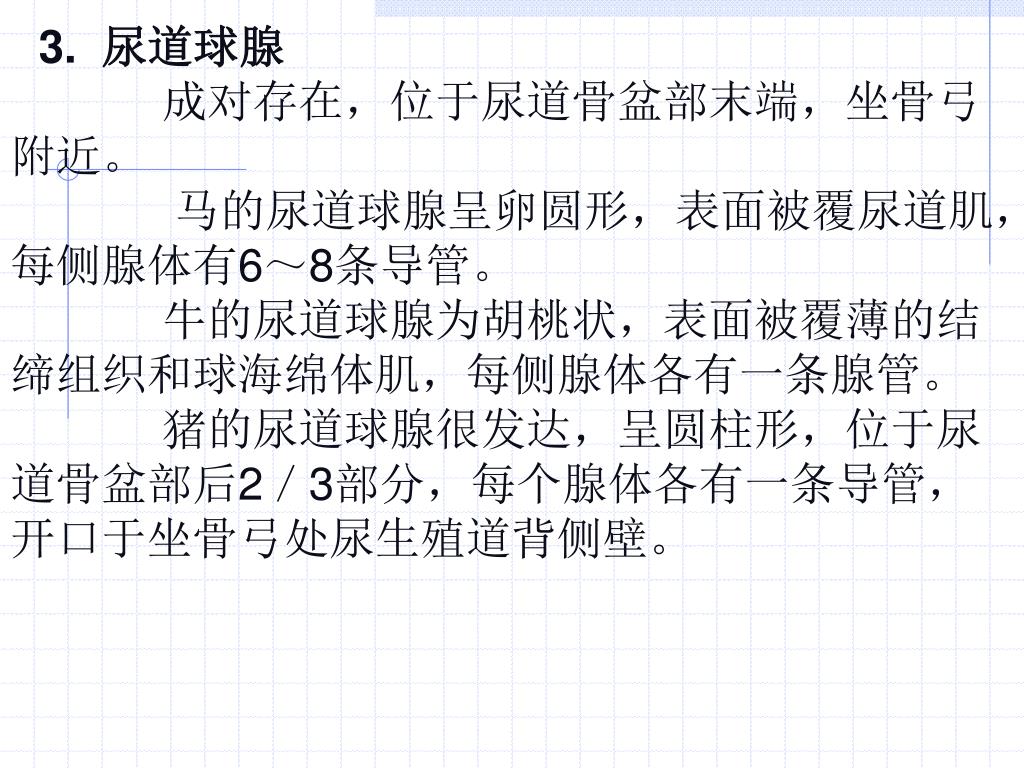 3. 尿道球腺
成对存在，位于尿道骨盆部末端，坐骨弓
附近。
马的尿道球腺呈卵圆形，表面被覆尿道肌，
每侧腺体有6～8条导管。
牛的尿道球腺为胡桃状，表面被覆薄的结
缔组织和球海绵体肌，每侧腺体各有一条腺管。
猪的尿道球腺很发达，呈圆柱形，位于尿
道骨盆部后2／3部分，每个腺体各有一条导管，
开口于坐骨弓处尿生殖道背侧壁。